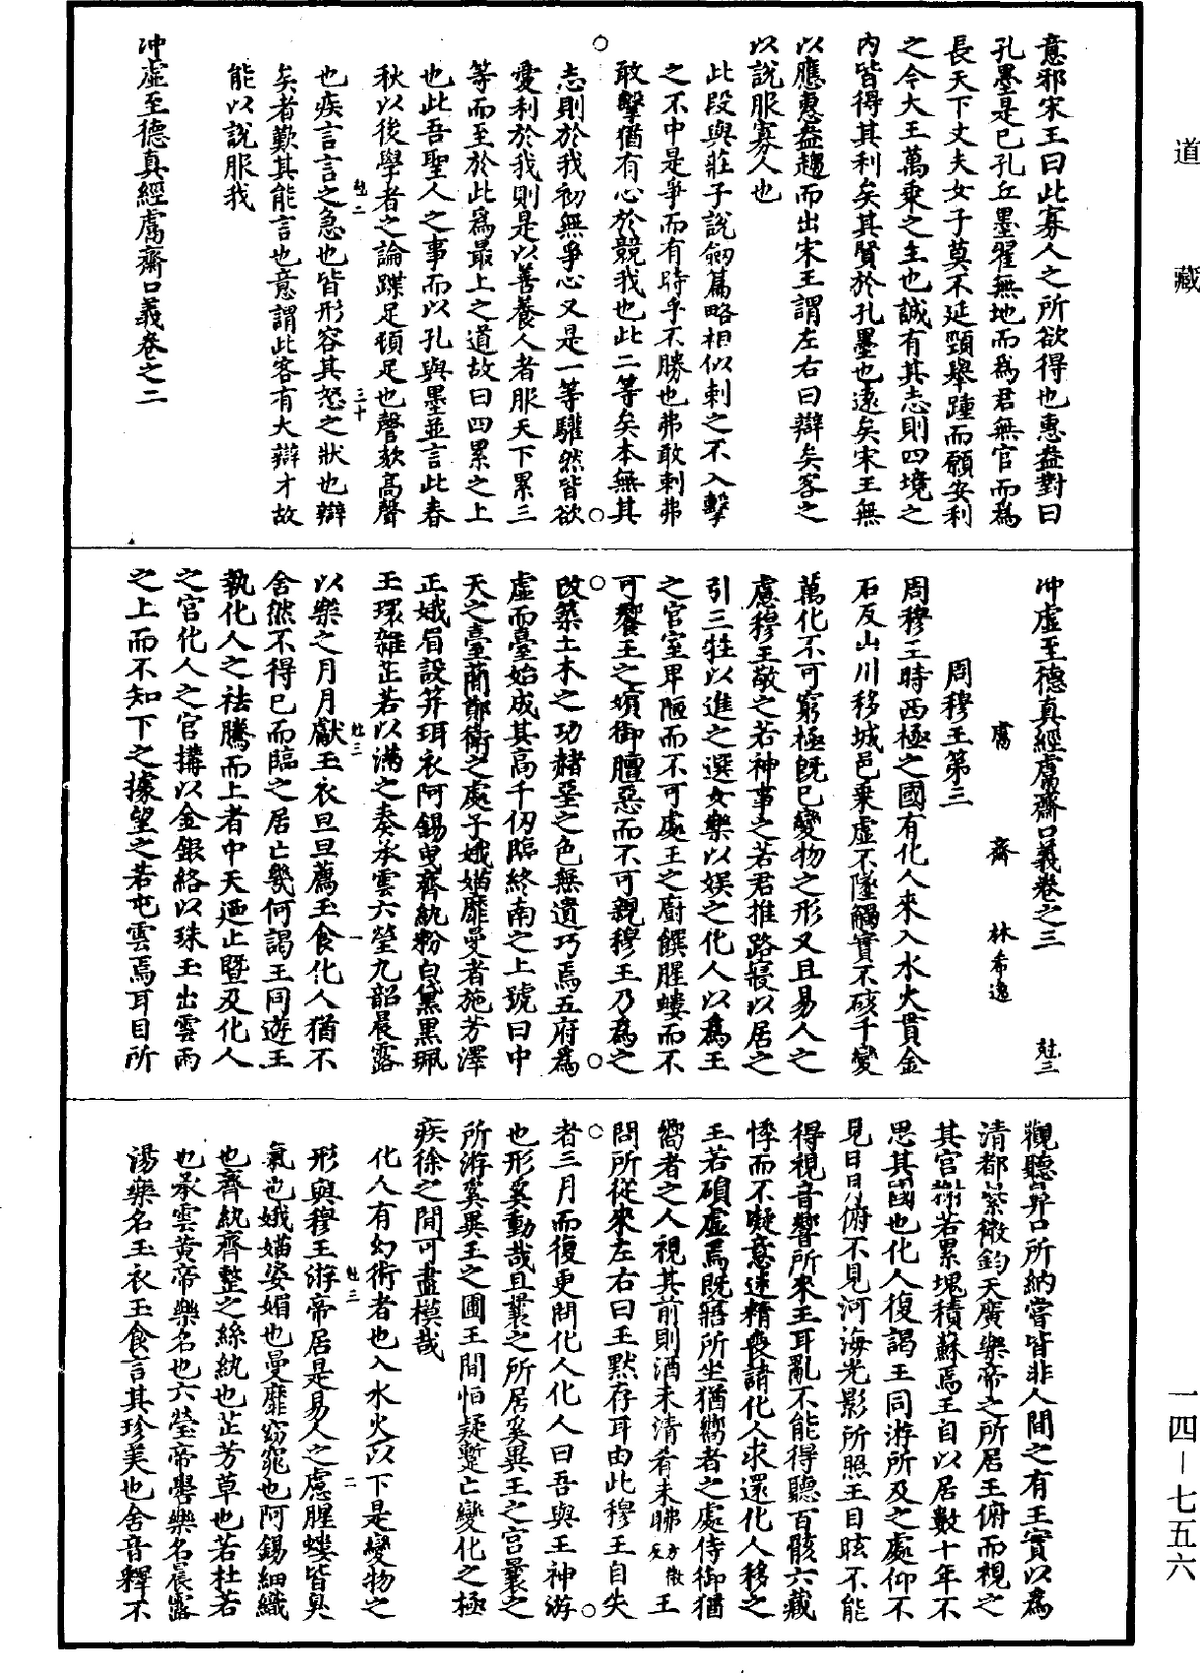 道藏
意邪宋王曰此寡人之所欲得也惠盎對曰
孔墨是已孔丘墨翟無地而爲君無官而爲
長天下丈夫女子莫不延頸舉踵而願安利
之今大王萬乘之主也誠有其志則四境之
内皆得其利矣其賢於孔墨也遠矣宋王無
以應惠盎趨而出宋王謂左右曰辯矣客之
以說服寡人也
此段與莊子說劒篇略相似刺之不入擊
之不中是爭而有時乎不勝也弗敢刺弗
敢擊猶有心於競我也此二等矣本無其
志則於我初無爭心又是一等驩然皆欲
愛利於我則是以善養人者服天下累三
等而至於此爲最上之道故曰四累之上
也此吾聖人之事而以孔與墨並言此春
秋以後學者之論蹀足頓足也謦欬高聲
也疾言言之急也皆形容其怒之狀也辯
矣者歎其能言也意謂此客有大辯才故
能以說服我
冲虛至德真經鬳齋口義卷之二
冲虛至德真經鬳齋口義卷之三
鬳齋林希逸
周穆王第三
周穆王時西極之國有化人來入水火貫金
石反山川移城邑乘虛不墜觸實不硋千變
萬化不可窮極既已變物之形又且易人之
慮穆王敬之若神事之若君推路寢以居之
引三牲以進之選女樂以娛之化人以爲王
之宮室卑陋而不可處王之廚饌腥螻而不
可饗王之嬪御膻惡而不可親穆王乃爲之
改築土木之功赭堊之色無遺巧焉五府爲
虛而臺始成其高千仞臨終南之上號曰中
天之臺蕳鄭衛之處子娥媌靡曼者施芳澤
正娥眉設笄珥衣阿錫曳齊紈粉白黛黑珮
玉環雜芷若以滿之奏承雲六瑩九韶晨露
以樂之月月獻玉衣旦旦薦玉食化人猶不
舍然不得已而臨之居亡幾何謁王同遊王
執化人之袪騰而上者中天迺止暨及化人
之宮化人之宮構以金銀絡以珠玉出雲雨
之上而不知下之據望之若屯雲焉耳目所
觀聽鼻口所納嘗皆非人間之有王實以爲
清都紫微鈞天廣樂帝之所居王俯而視之
其宮榭若累塊積蘇焉王自以居數十年不
思其國也化人復謁王同游所及之處仰不
見日月俯不見河海光影所照王目眩不能
得視音響所來王耳亂不能得聽百骸六藏
悸而不凝意迷精喪請化人求還化人移之
王若磒虛焉既寤所坐猶嚮者之處侍御猶
嚮者之人視其前則酒未清肴未昲方微反王
問所從來左右曰王默存耳由此穆王自失
者三月而復更問化人化人曰吾與王神游
也形奚動哉且曩之所居奚異王之宮曩之
所游奚異王之圃王間怕疑蹔亡變化之極
疾徐之間可盡模哉
化人有幻術者也入水火以下是變物之
形與穆王游帝居是易人之慮腥螻皆臭
氣也娥媌姿媚也曼靡窈窕也阿錫細織
也齊紈齊整之絲紈也芷芳草也若杜若
也承雲黄帝樂名也六瑩帝嚳樂名晨露
湯樂名玉衣玉食言其珍美也舍音釋不
一四—七五六